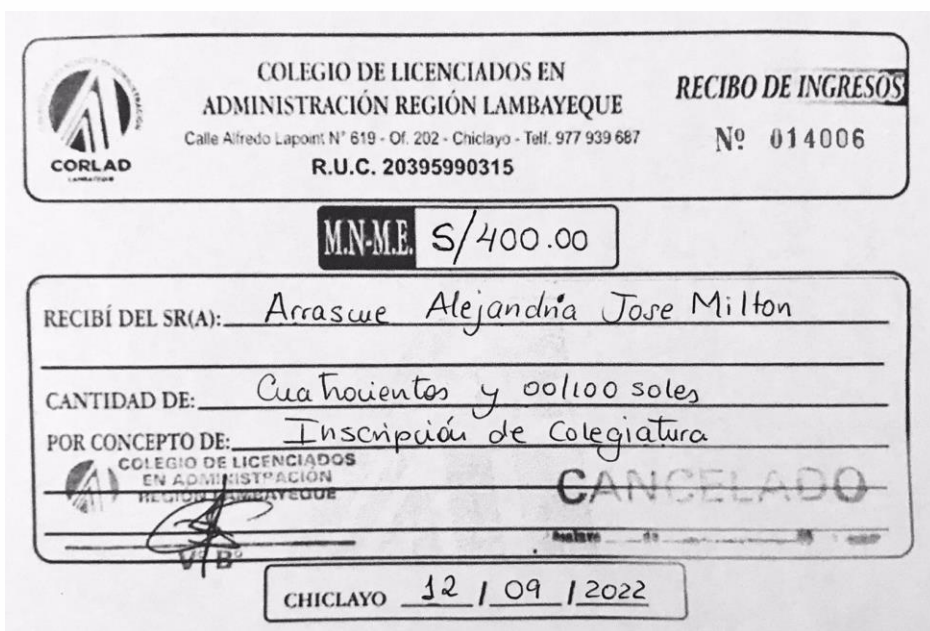 COLEGIO DE LICENCIADOS EN
ADMINISTRACIÓN REGIÓN LAMBAYEQUE
Calle Alfredo Lapoint N° 619 - Of. 202 - Chiclayo - Telf. 977 939 687
R.U.C. 20395990315
CORLAD
LAMBAYEQUE
RECIBO DE INGRESOS
Nº 014006
M.N-M.E. S/400.00
RECIBÍ DEL SR(A): Arrascue Alejandria Jose Milton
CANTIDAD DE: Cuatrocientos y 00/100 soles
POR CONCEPTO DE: Inscripción de Colegiatura
COLEGIO DE LICENCIADOS
EN ADMINISTRACIÓN
REGION LAMBAYEQUE
CANCELADO
Vº Bº
CHICLAYO 12 / 09 / 2022